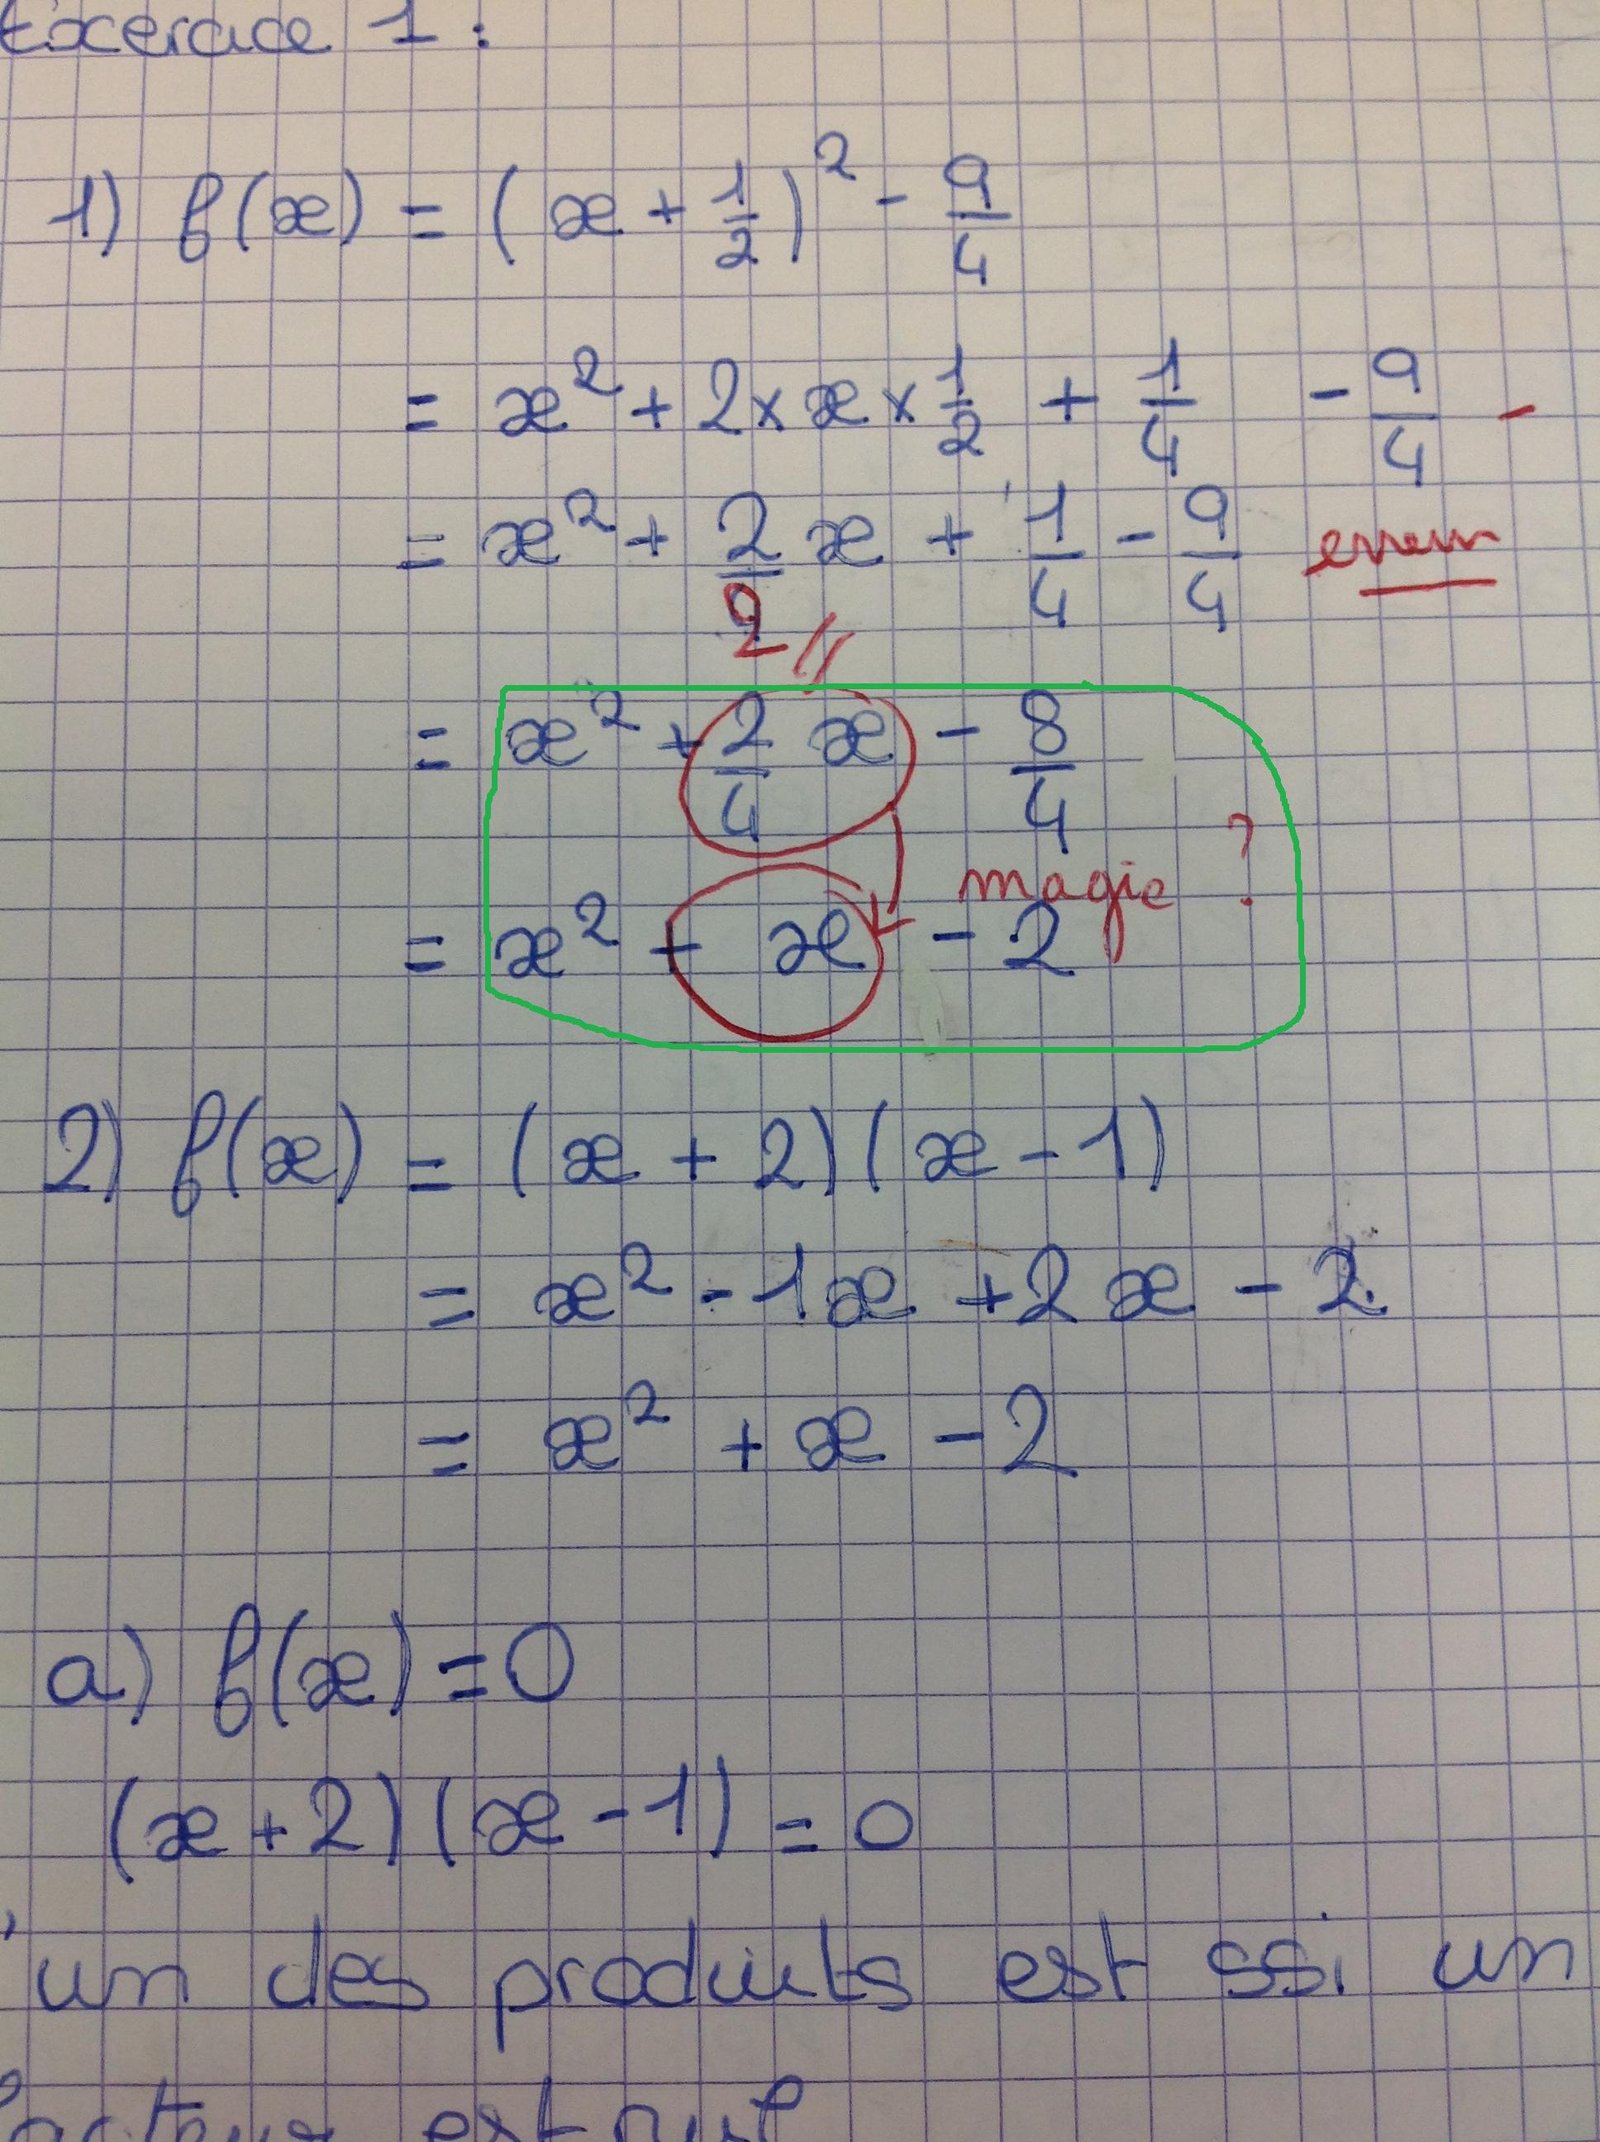 Exercice 1 :
1) f(x) = (x + 1/2)² - 9/4
= x² + 2 × x × 1/2 + 1/4 - 9/4 -
= x² + 2/2 x + 1/4 - 9/4 erreur
= x² + 2/4 x - 8/4
magie ?
= x² + x - 2
2) f(x) = (x + 2)(x - 1)
= x² - 1x + 2x - 2
= x² + x - 2
a) f(x) = 0
(x + 2)(x - 1) = 0
un des produits est ssi un
facteur est nul